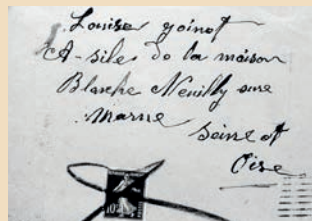 Louise goinot
A-sile de la maison
Blanche Neuilly sure
Marne
Seine et
Oise
10